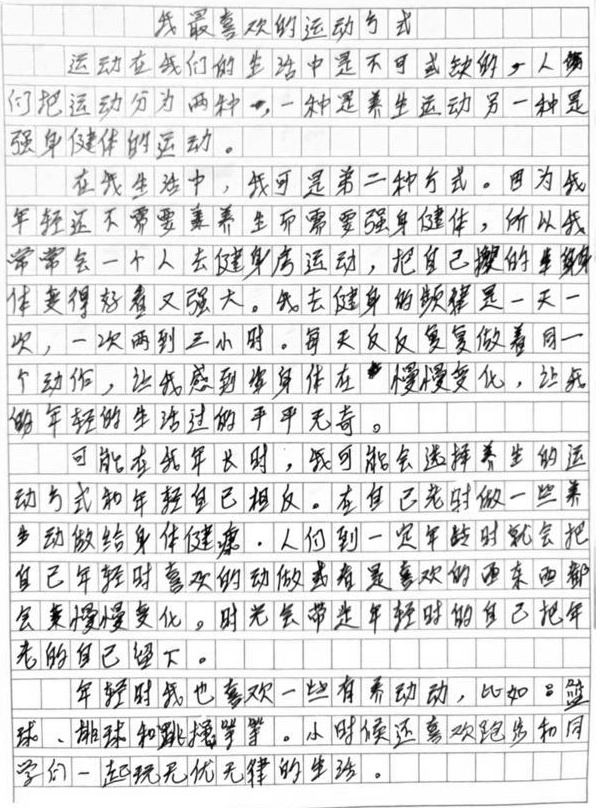 我最喜欢的运动方式
运动在我们的生活中是不可或缺的,人
们把运动分为两种,一种是养生运动另一种是
强身健体的运动。
在我生活中,我可是第二种方式。因为我
年轻还不需要养生而需要强身健体,所以我
常常会一个人去健身房运动,把自己的身
体变得好看又强大。我去健身的频律是一天一
次,一次两到三小时。每天反反复复做着同一
个动作,让我感到身体在慢慢变化,让我
的年轻的生活过的平平无奇。
可能在我年长时,我可能会选择养生的运
动方式和年轻自己相反。在自己老时做一些养
生动做给身体健康.人们到一定年龄时就会把
自己年轻时喜欢的动做或者是喜欢的东西都
会慢慢变化。时光会带走年轻时的自己把年
老的自己留下。
年轻时我也喜欢一些有养动动,比如:篮
球、排球和跳绳等等。小时候还喜欢跑步和同
学们一起玩无忧无律的生活。